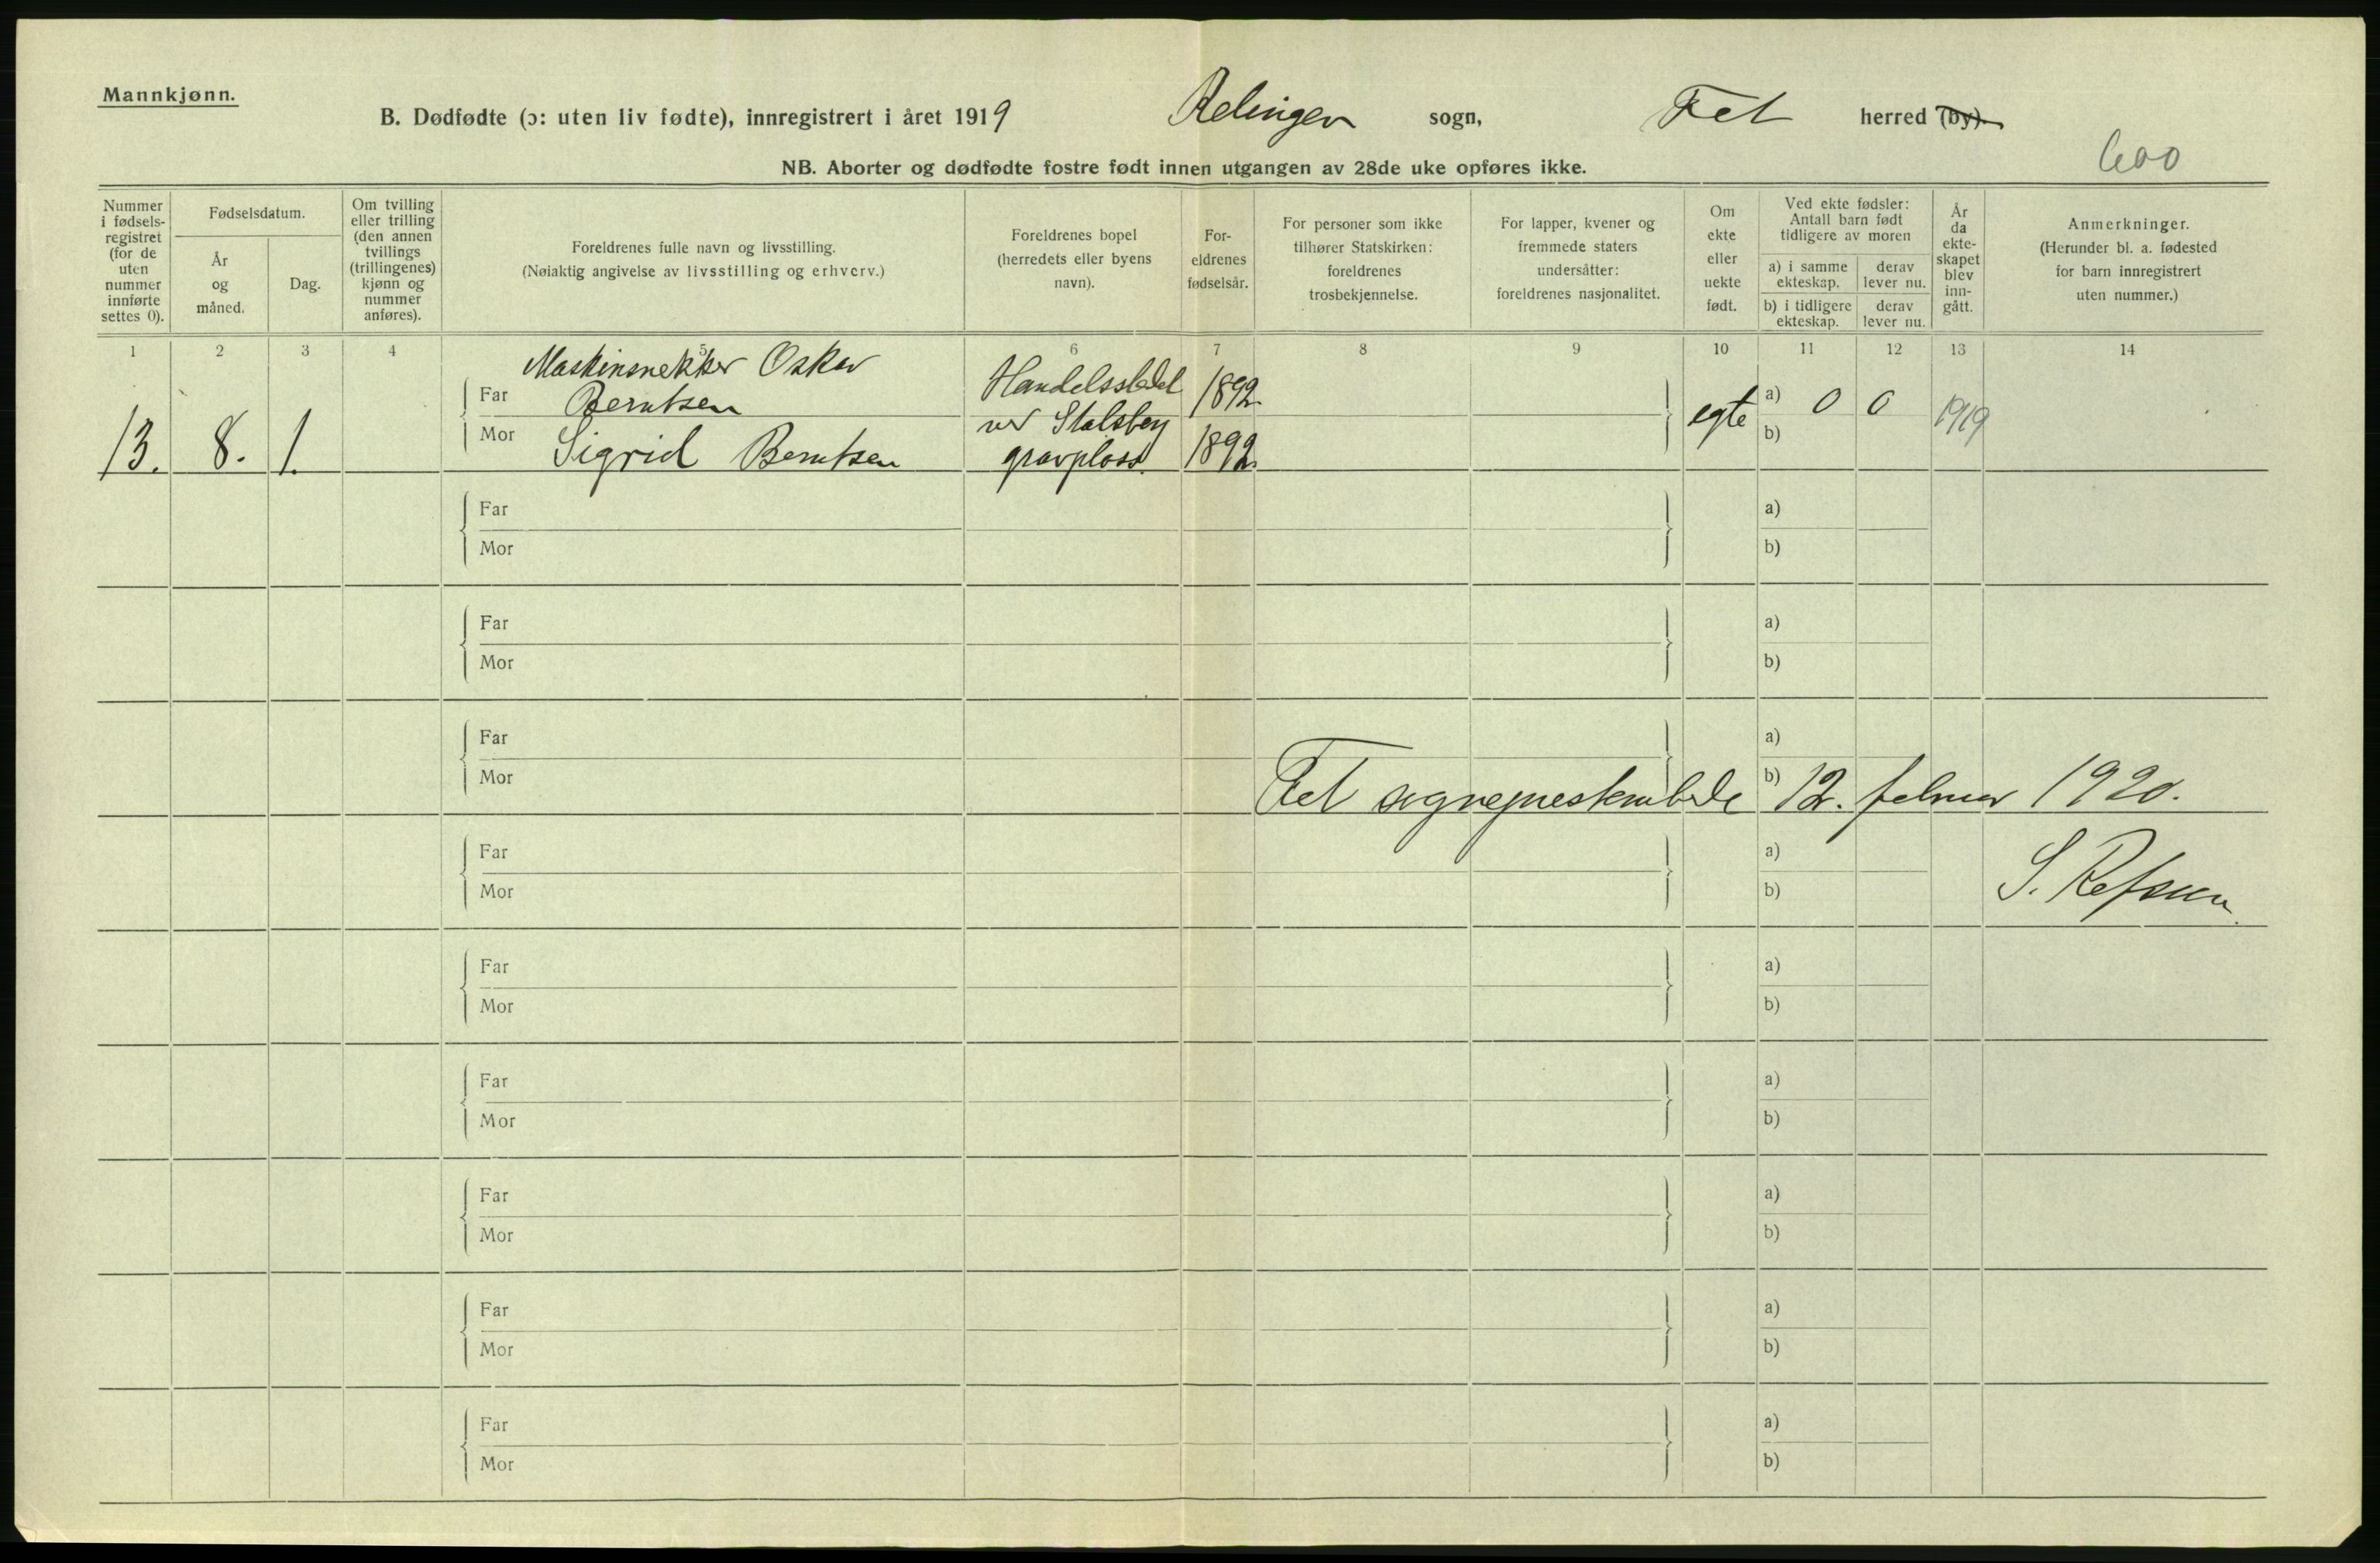 Mannkjønn.
B. Dødfødte (ɔ: uten liv fødte), innregistrert i året 1919 Relingen sogn, Fet herred (by).
600
NB. Aborter og dødfødte fostre født innen utgangen av 28de uke opføres ikke.
Nummer i fødsels-registret (for de uten nummer innførte settes 0).
Fødselsdatum.
År og måned.
Dag.
Om tvilling eller trilling (den annen tvillings (trillingenes) kjønn og nummer anføres).
Foreldrenes fulle navn og livsstilling.
(Nøiaktig angivelse av livsstilling og erhverv.)
Foreldrenes bopel (herredets eller byens navn).
For-eldrenes fødselsår.
For personer som ikke tilhører Statskirken: foreldrenes trosbekjennelse.
For lapper, kvener og fremmede staters undersåtter: foreldrenes nasjonalitet.
Om ekte eller uekte født.
Ved ekte fødsler: Antall barn født tidligere av moren
a) i samme ekteskap.
derav lever nu.
b) i tidligere ekteskap.
derav lever nu.
År da ekte-skapet blev inn-gått.
Anmerkninger.
(Herunder bl. a. fødested for barn innregistrert uten nummer.)
1 2 3 4 5 6 7 8 9 10 11 12 13 14
Maskinsnekker Oskar
Far Berntsen Handelsstedet 1892
ved Stalsberg
13. 8. 1. Mor Sigrid Berntsen gravplass. 1892 egte a) 0 0 1919
b)
Far a)
Mor b)
Far a)
Mor b)
Far a)
Mor b)
Fet sogneprestembede 12. februar 1920.
Far a)
Mor b)
S. Refsum
Far a)
Mor b)
Far a)
Mor b)
Far a)
Mor b)
Far a)
Mor b)
Far a)
Mor b)